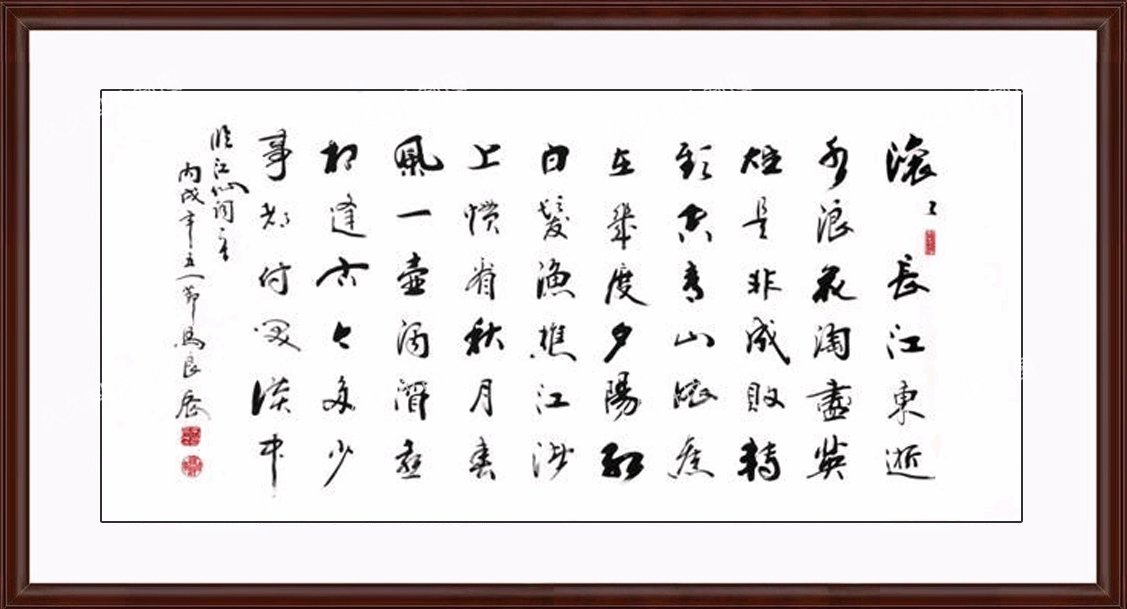 滚〻長江東逝
水浪花淘盡英
雄是非成敗轉
頭空青山依舊
在幾度夕陽紅
白髮漁樵江渚
上慣看秋月春
風一壺濁酒喜
相逢古今多少
事都付笑談中
临江仙词一首
丙戌年五一節馬良